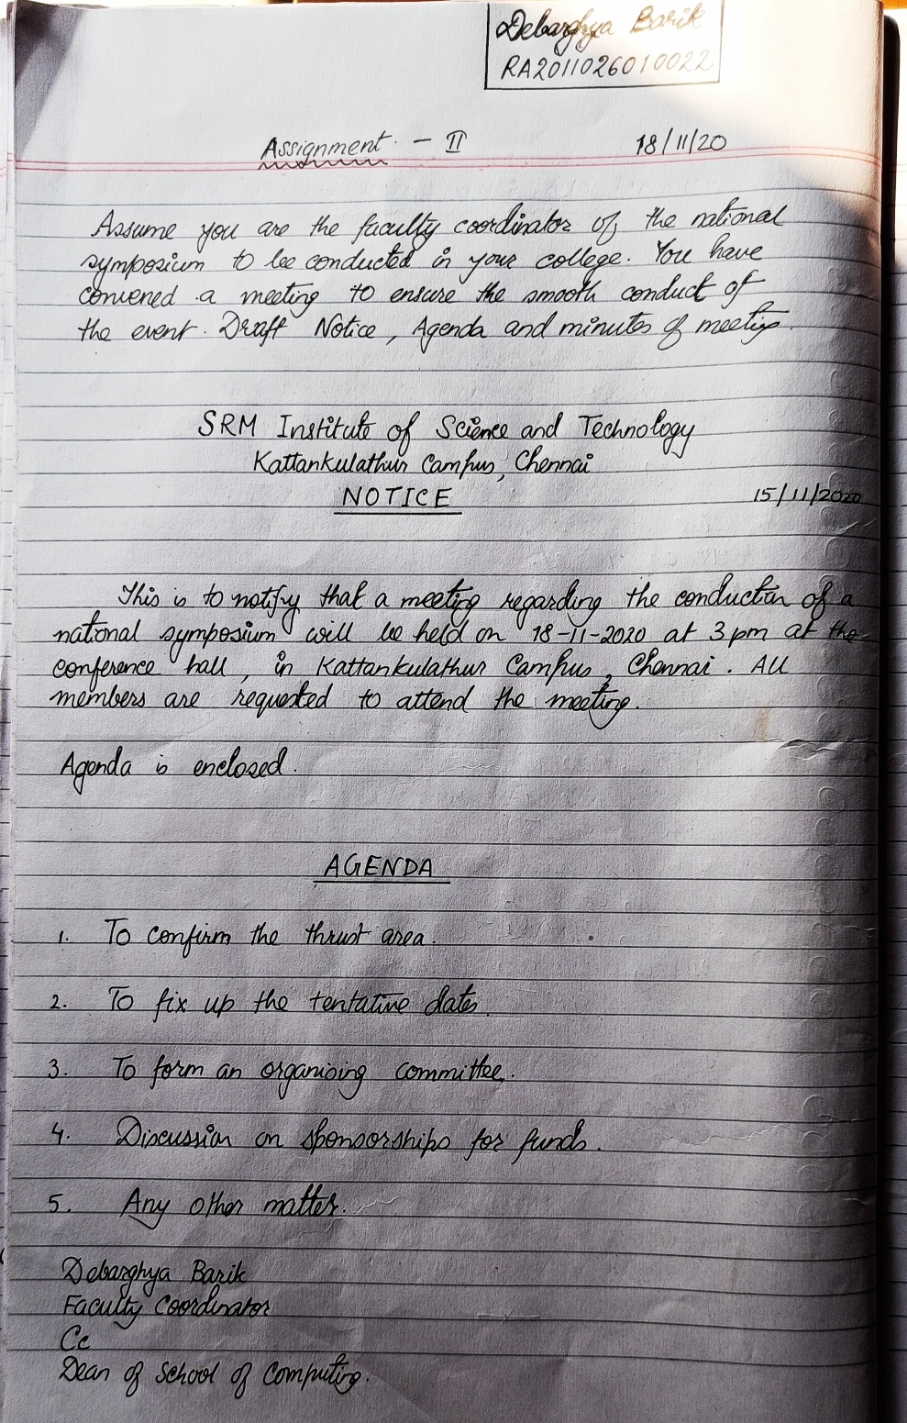 Debarghya Barik
RA2011026010022
Assignment - II 18/11/20
Assume you are the faculty coordinator of the national
symposium to be conducted in your college. You have
convened a meeting to ensure the smooth conduct of
the event. Draft Notice, Agenda and minutes of meeting.
SRM Institute of Science and Technology
Kattankulathur Campus, Chennai
NOTICE 15/11/2020
This is to notify that a meeting regarding the conduction of a
national symposium will be held on 18-11-2020 at 3 pm at the
conference hall, in Kattankulathur Campus, Chennai. All
members are requested to attend the meeting.
Agenda is enclosed.
AGENDA
1. To confirm the thrust area.
2. To fix up the tentative dates.
3. To form an organising committee.
4. Discussion on sponsorships for funds.
5. Any other matter.
Debarghya Barik
Faculty Coordinator
Cc
Dean of School of Computing.